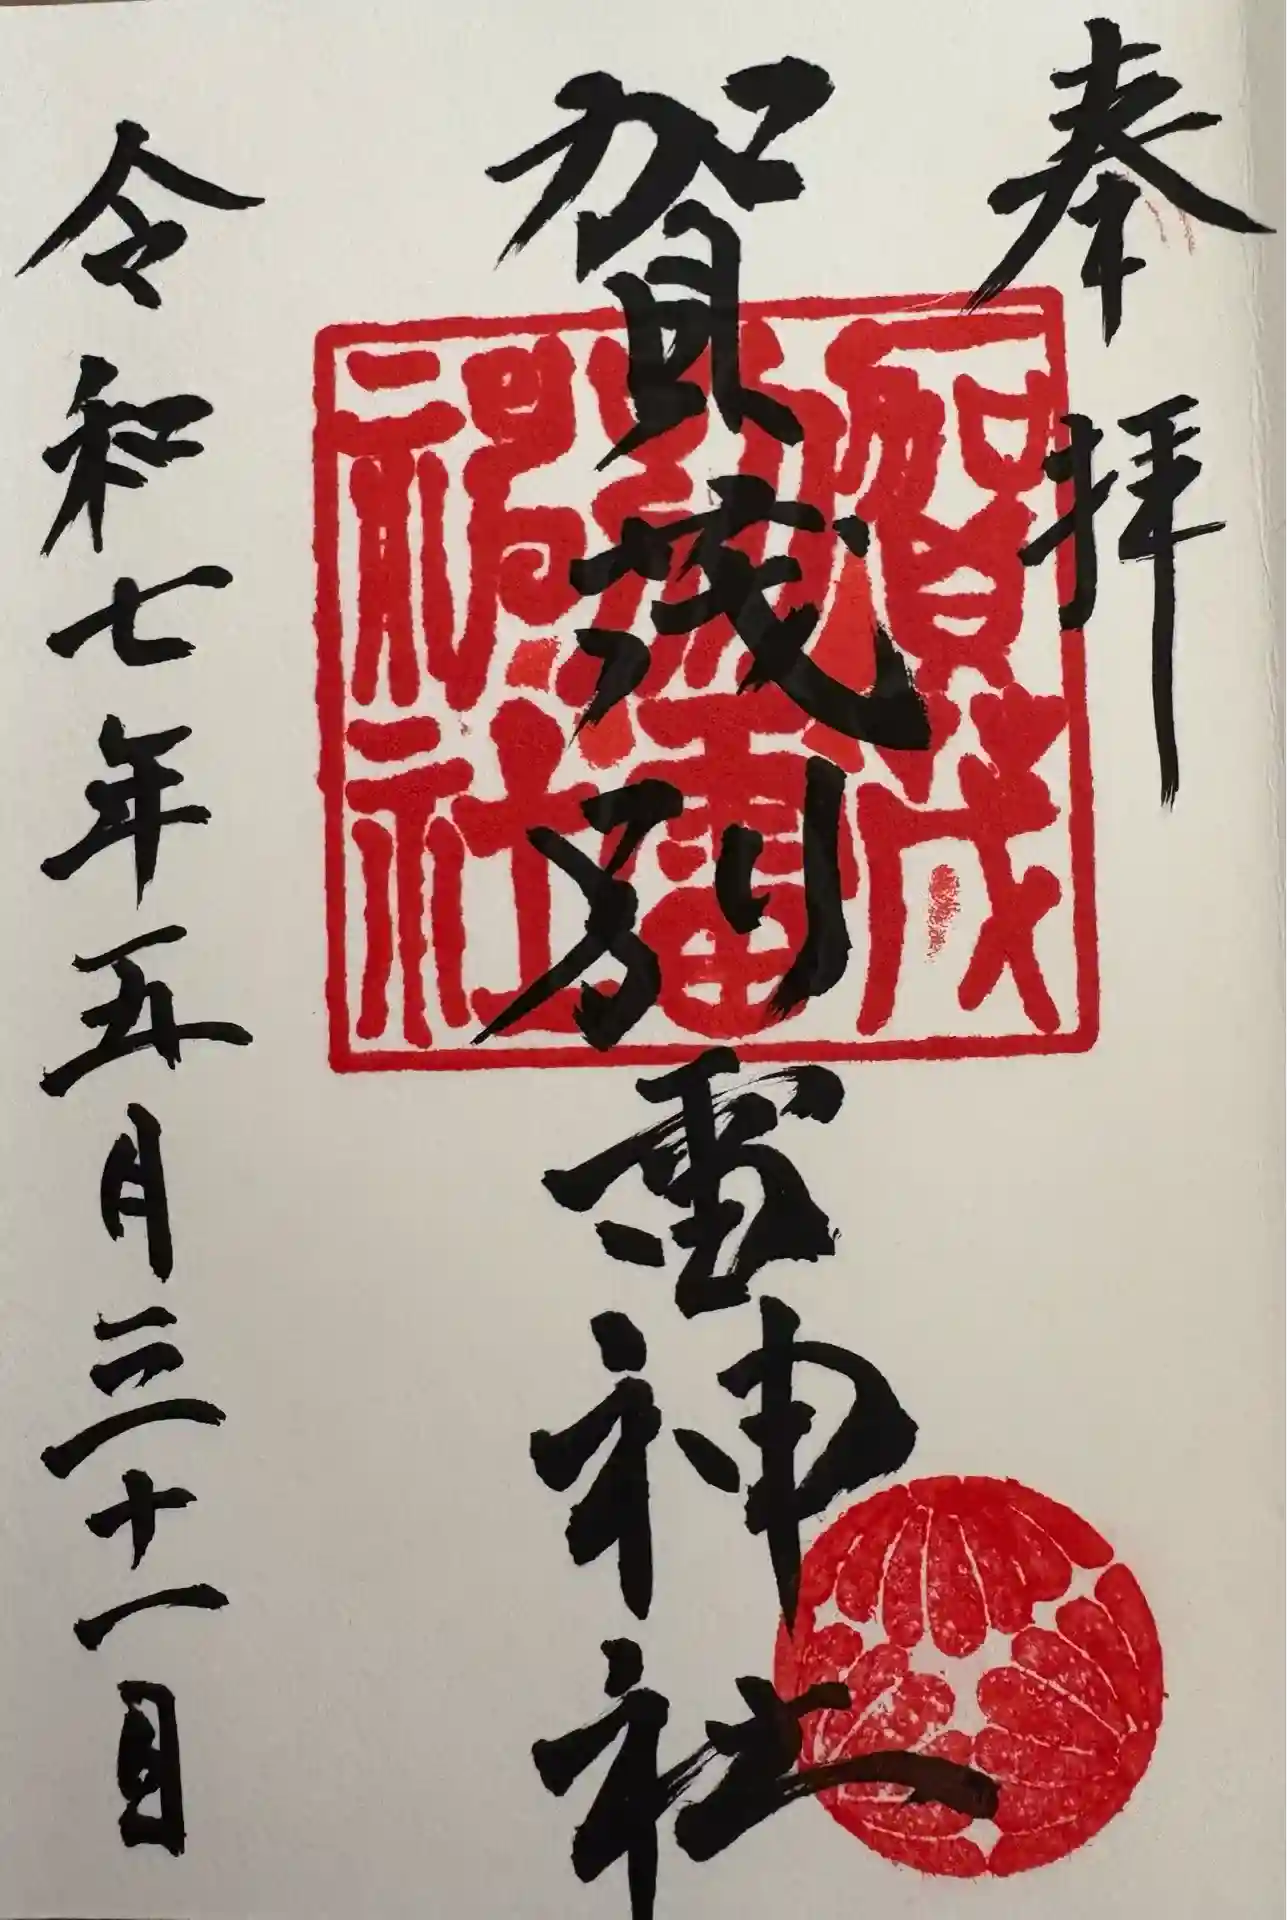 奉拝
賀茂別雷神社
令和七年五月三十一日
賀茂
別雷
神社